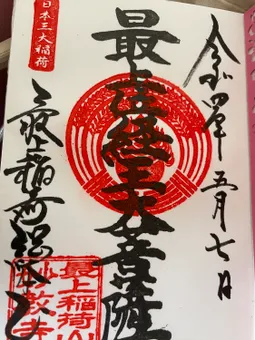 令和四年 五月 七日
最上位経王大菩薩
日本三大稲荷
最上稲荷総本山
最上稲荷山
妙教寺